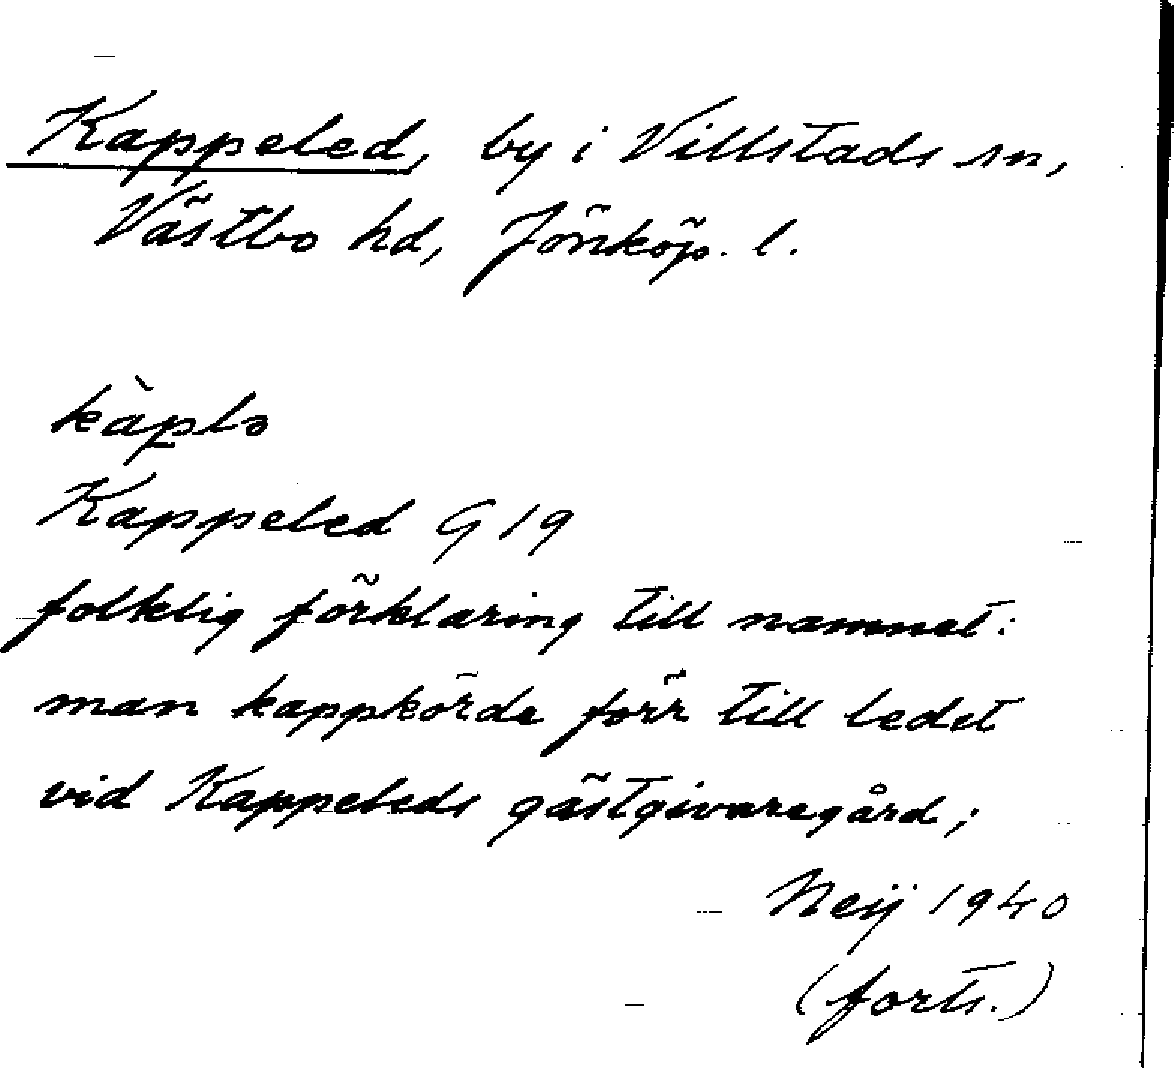 Kappeled, by i Villstads sn,
Västbo hd, Jönköp. l.
kàplə
Kappeled G 19
folklig förklaring till namnet:
man kappkörde förr till ledet
vid Kappeleds gästgivaregård;
Neij 1940
(forts.)